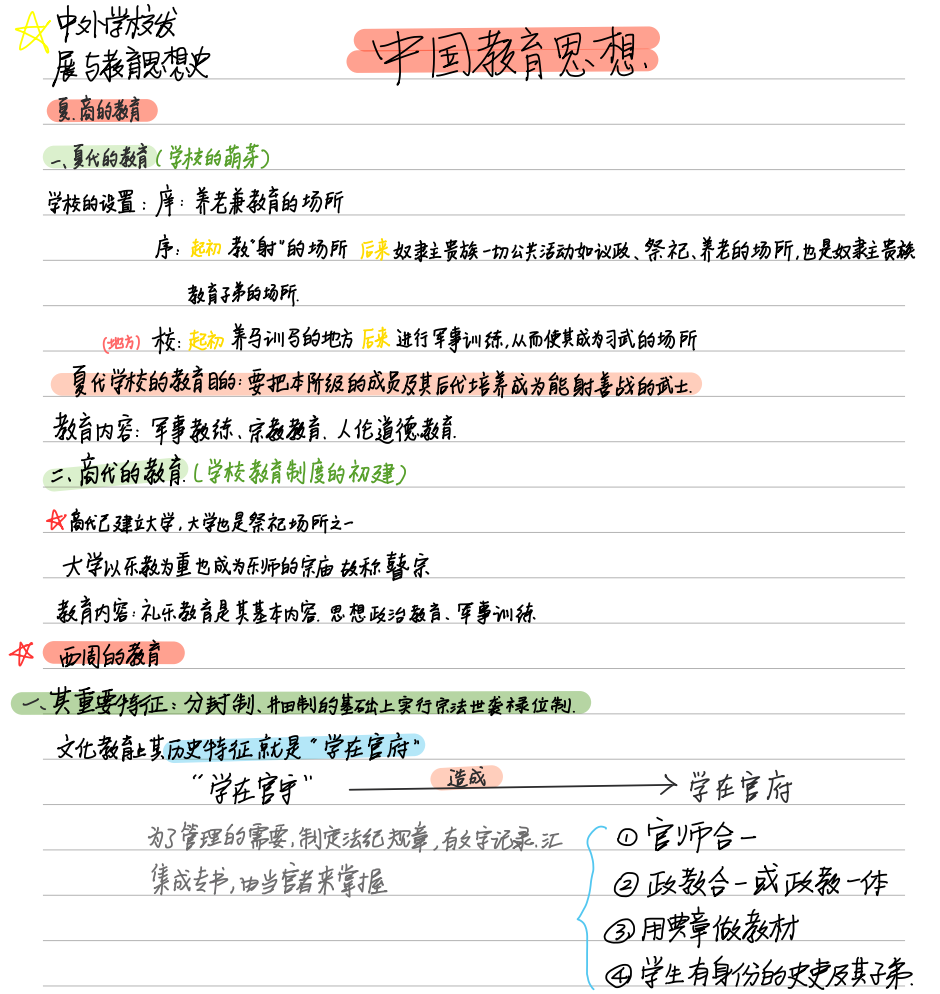 中外学校发
展与教育思想史
中国教育思想.
夏.商的教育
一、夏代的教育(学校的萌芽)
学校的设置：庠：养老兼教育的场所
序：起初 教"射"的场所 后来 奴隶主贵族一切公共活动如议政、祭祀、养老的场所,也是奴隶主贵族
教育子弟的场所.
(地方) 校：起初 养马训马的地方 后来 进行军事训练,从而使其成为习武的场所
夏代学校的教育目的：要把本阶级的成员及其后代培养成为能射善战的武士.
教育内容：军事教练、宗教教育.人伦道德教育.
二、商代的教育.(学校教育制度的初建)
商代已建立大学,大学也是祭祀场所之一
大学以乐教为重也成为乐师的宗庙 故称 瞽宗
教育内容：礼乐教育是其基本内容.思想政治教育、军事训练
西周的教育
一、其重要特征：分封制、井田制的基础上实行宗法世袭禄位制.
文化教育上其历史特征 就是"学在官府"
"学在官守" 造成 学在官府
为了管理的需要,制定法纪规章,有文字记录.汇
集成专书,由当官者来掌握
① 官师合一
② 政教合一或政教一体
③ 用典章做教材
④ 学生有身份的史吏及其子弟.